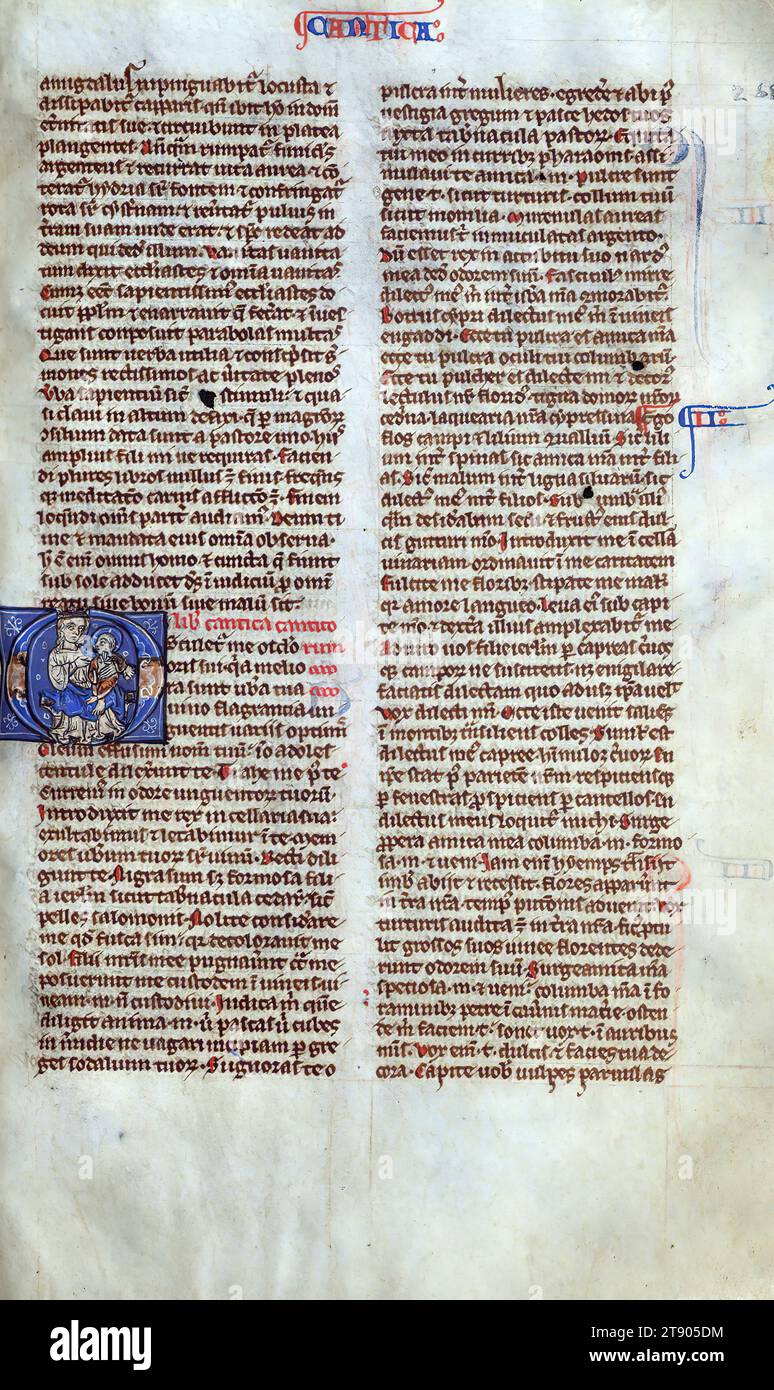 CANTICA
amigdalus inpinguabitur locusta et
dissipabitur capparis quoniam ibit homo in domum
eternitatis sue et circuibunt in platea
plangentes. Antequam rumpatur funiculus
argenteus et recurrat vitta aurea et con
teratur hydria super fontem et confringatur
rota super cysternam et revertatur pulvis in
terram suam unde erat et spiritus redeat ad
deum qui dedit illum. Vanitas vanita
tum dixit ecclesiastes et omnia vanitas.
Cumque esset sapientissimus ecclesiastes do
cuit populum et enarravit que fecerat et inves
tigans composuit parabolas multas
Que sunt verba utilia et conscripsit ser
mones rectissimos ac veritate plenos
Verba sapientium sicut stimuli et qua
si clavi in altum defixi que per magistrorum
consilium data sunt a pastore uno. his
amplius fili mi ne requiras. Faciendi
plures libros nullus est finis frequens
que meditatio carnis afflictio est. Finem
loquendi omnes pariter audiamus. Deum ti
me et mandata eius omnia observa.
hoc est enim omnis homo et cuncta que fiunt
sub sole adducet deus in iudicium pro omni
erratu sive bonum sive malum sit.
lib cantica cantico
Osculetur me osculo rum
oris sui quia melio
ra sunt ubera tua
vino flagrantia un
guentis variis optimis
Oleum effusum nomen tuum ideo adoles
centule dilexerunt te. Trahe me post te
curremus in odore unguentorum tuorum.
Introduxit me rex in cellaria sua
exultabimus et letabimur in te mem
ores uberum tuorum super vinum. Recti dili
gunt te. Nigra sum sed formosa filia
ierusalem sicut tabernacula cedar sicut
pelles salomonis. Nolite considerare
me quod fusca sim quia decoloravit me
sol. Filii matris mee pugnaverunt contra me
posuerunt me custodem in vineis vi
neam m. non custodivi. Indica michi quem
diligit anima m. ubi pascas ubi cubes
in meridie ne vagari incipiam per gre
ges sodalium tuorum. Si ignoras te o
pulcra inter mulieres. egredere et abi post
vestigia gregum et pasce hedos tuos
iuxta tabernacula pastorum. Equita
tui meo in curribus pharaonis assi
milavi te amica m. Pulcre sunt
gene t. sicut turturis. collum tuum
sicut monilia. Murenulas aureas
faciemus tibi vermiculatas argento.
Dum esset rex in accubitu suo nardus
mea dedit odorem suum. Fasciculus mirre
dilectus meus michi inter ubera mea commorabitur.
Botrus cypri dilectus meus michi in vineis
engaddi. Ecce tu pulcra es amica mea
ecce tu pulcra oculi tui columbarum.
Ecce tu pulcher es dilecte mi et decorus
lectulus noster floridus. tigna domorum nostrarum
cedrina laquearia nostra cypressina. Ego II
flos campi et lilium convallium. Sicut lili
um inter spinas sic amica mea inter fili
as. Sicut malum inter ligna silvarum sic
dilectus meus inter filios. Sub umbra illius
quem desideraham sedi et fructus eius dul
cis gutturi meo. Introduxit me in cella
vinariam ordinavit in me caritatem
Fulcite me floribus stipate me malis
quia amore langueo. Leva eius sub capi
te meo et dextera illius amplexabitur me.
Adiuro vos filie ierusalem per capreas cervos
que camporum ne suscitetis neque evigilare
faciatis dilectam quo adusque ipsa velit
Vox dilecti mei. Ecce iste venit saliens
in montibus transiliens colles. Similis est
dilectus meus capree hinnulo cervorum. En
ipse stat post parietem nostrum respiciens
per fenestras prospiciens per cancellos. En
dilectus meus loquitur michi. Surge
propera amica mea columba m. formo
sa m. et veni. Iam enim hyemps transiit
imber abiit et recessit. flores apparuerunt
in terra nostra. tempus putationis advenit. Vox
turturis audita est in terra nostra. ficus protu
lit grossos suos vinee florentes dede
runt odorem suum. Surge amica mea
speciosa m. et veni. columba mea in fo
raminibus petre in caverna macerie osten
de michi faciem t. sonet vox t. in auribus
meis. Vox enim t. dulcis et facies tua de
cora. Capite nobis vulpes parvulas
alamy
Image ID: 2T905DM
www.alamy.com